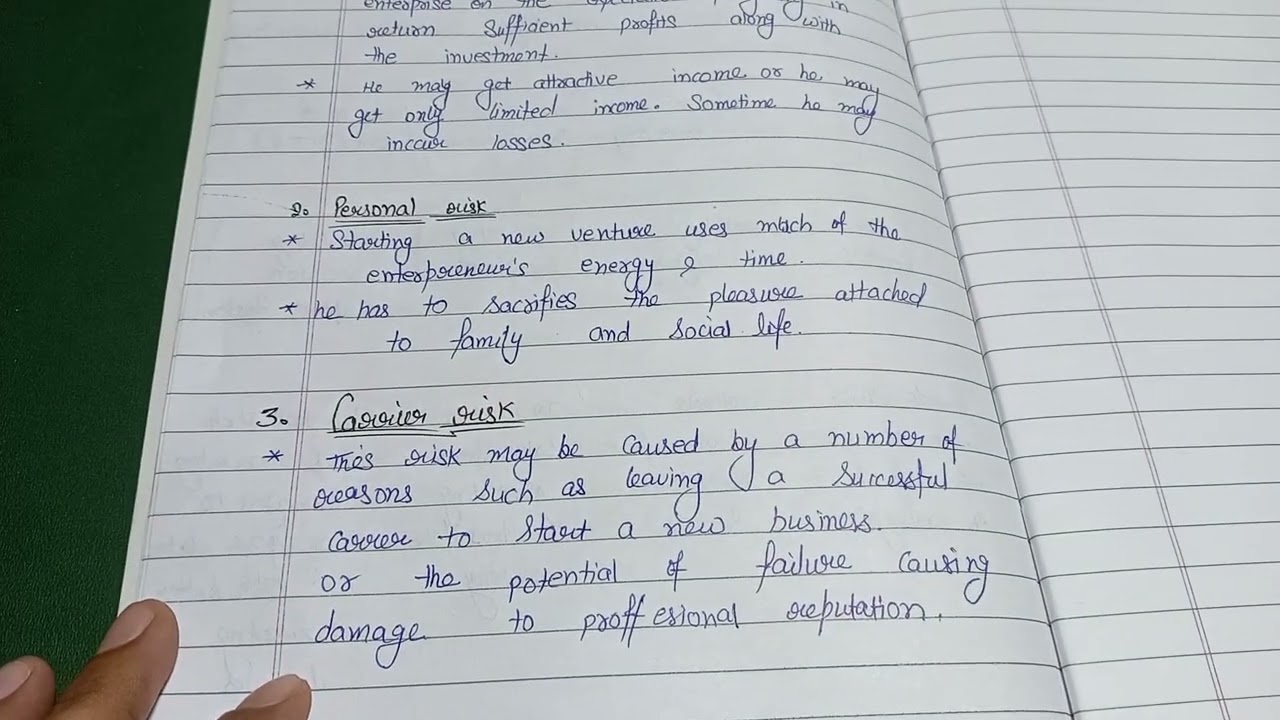 enterprise on the in
return sufficient profits along with
the investment.
* He may get attractive income or he may
get only limited income. Sometime he may
inccur losses.
2. Personal risk
* Starting a new venture uses much of the
enterpreneur's energy & time.
* he has to sacrifies the pleasure attached
to family and social life.
3. Carrier risk
* this risk may be caused by a number of
reasons such as leaving a successful
carrer to start a new business.
or the potential of failure causing
damage to proffesional reputation.